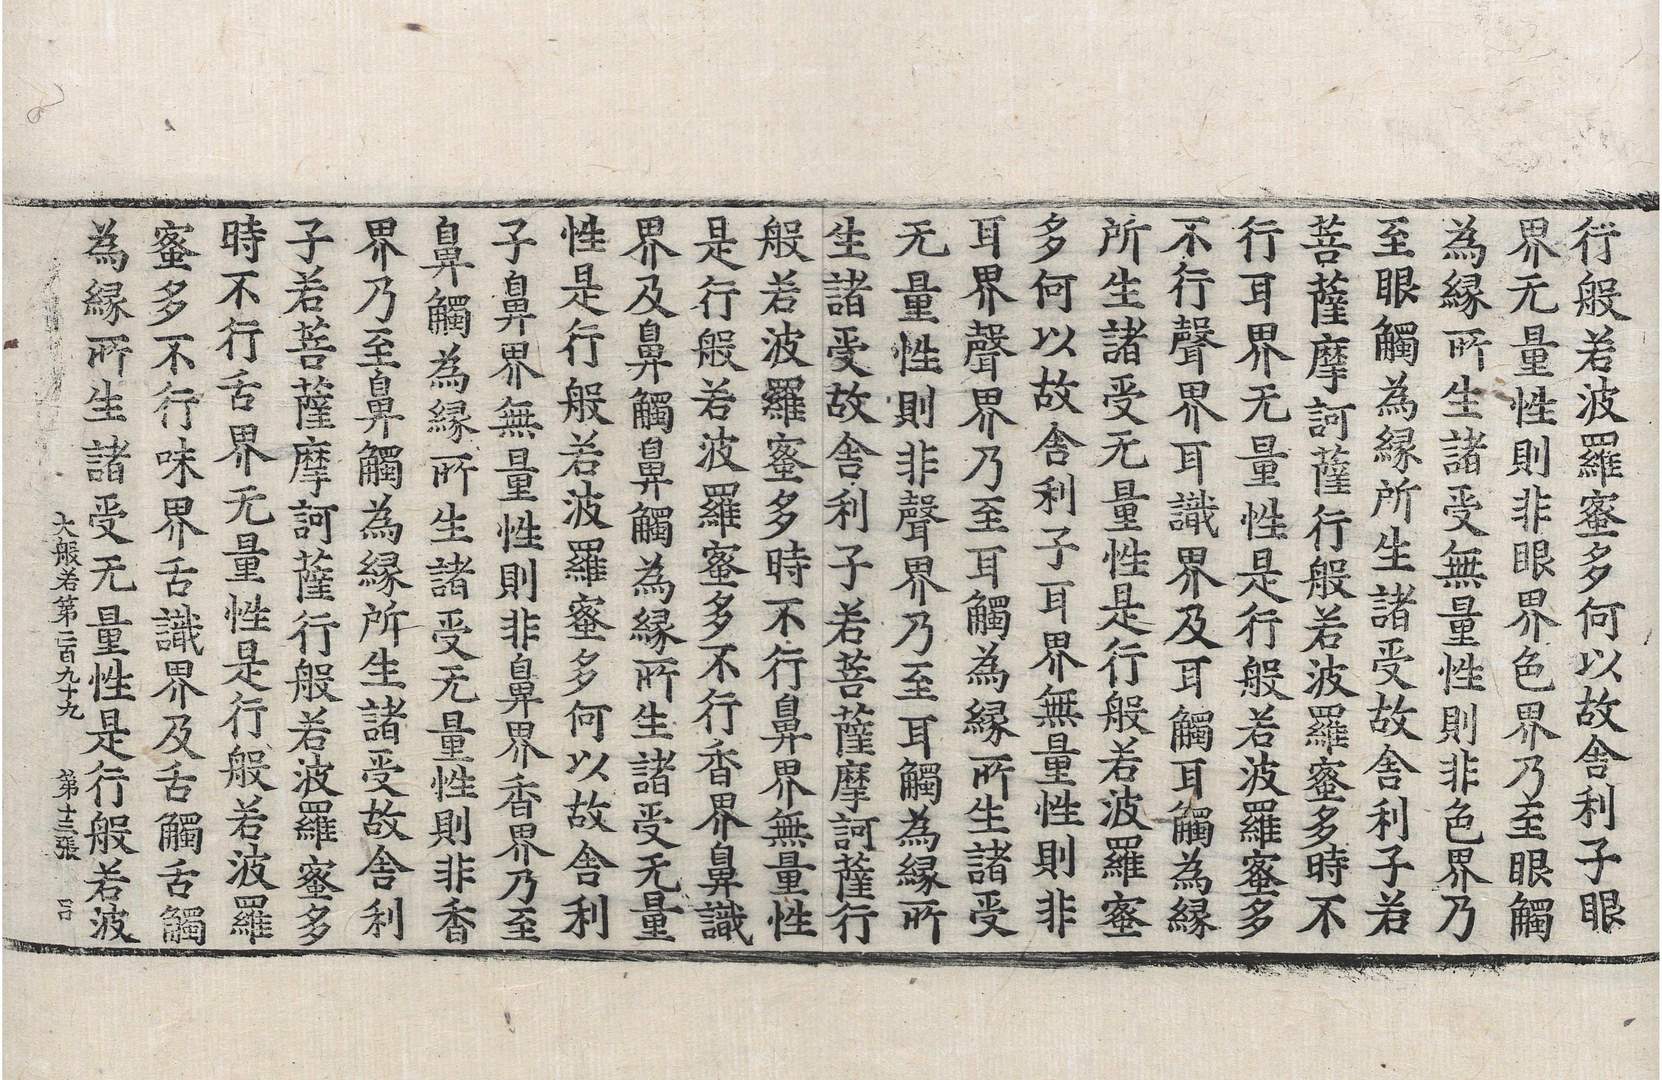 行般若波羅蜜多何以故舍利子眼
界无量性則非眼界色界乃至眼觸
為縁所生諸受無量性則非色界乃
至眼觸為縁所生諸受故舍利子若
菩薩摩訶薩行般若波羅蜜多時不
行耳界无量性是行般若波羅蜜多
不行聲界耳識界及耳觸耳觸為縁
所生諸受无量性是行般若波羅蜜
多何以故舍利子耳界無量性則非
耳界聲界乃至耳觸為縁所生諸受
无量性則非聲界乃至耳觸為縁所
生諸受故舍利子若菩薩摩訶薩行
般若波羅蜜多時不行鼻界無量性
是行般若波羅蜜多不行香界鼻識
界及鼻觸鼻觸為縁所生諸受无量
性是行般若波羅蜜多何以故舍利
子鼻界無量性則非鼻界香界乃至
鼻觸為縁所生諸受无量性則非香
界乃至鼻觸為縁所生諸受故舍利
子若菩薩摩訶薩行般若波羅蜜多
時不行舌界无量性是行般若波羅
蜜多不行味界舌識界及舌觸舌觸
為縁所生諸受无量性是行般若波
大般若第二百九十九 第十三張